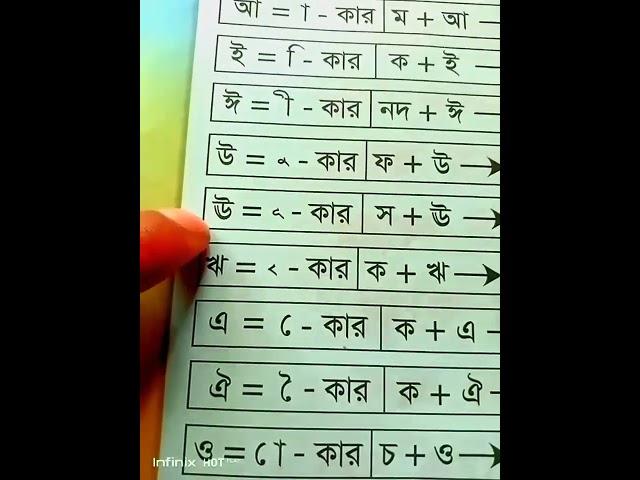 আ = া - কার ম + আ
ই = ি - কার ক + ই
ঈ = ী - কার নদ + ঈ
উ = ু - কার ফ + উ →
ঊ = ূ - কার স + ঊ →
ঋ = ৃ - কার ক + ঋ →
এ = ে - কার ক + এ
ঐ = ৈ - কার ক + ঐ
ও = ো - কার চ + ও →
Infinix HOT